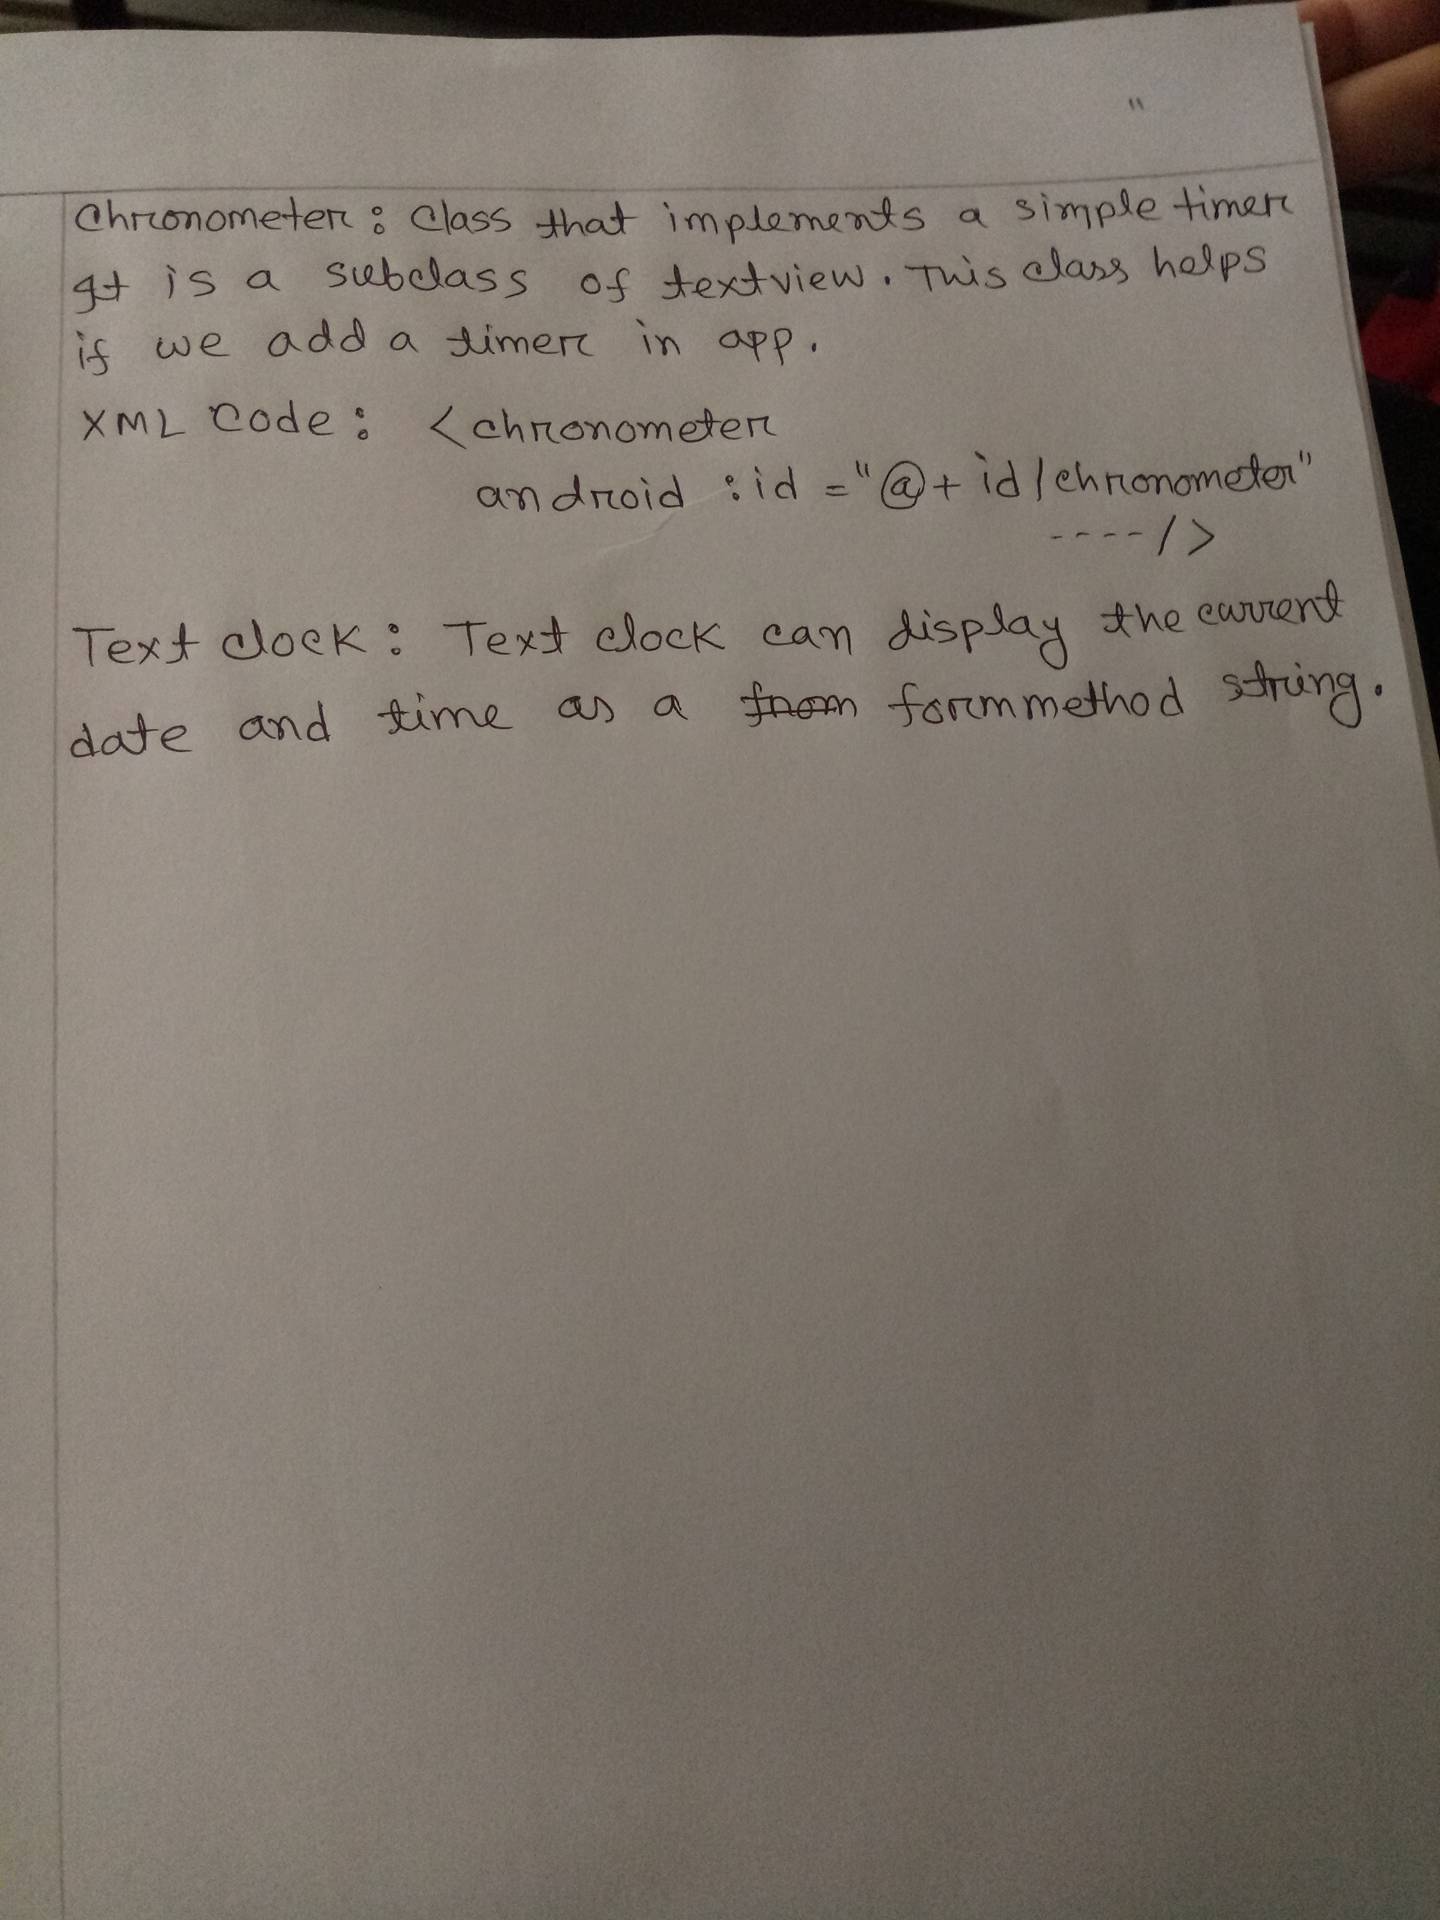 "
Chronometer: Class that implements a simple timer
It is a subclass of textview. This class helps
if we add a timer in app.
XML Code: <chronometer
android :id ="@+ id/chronometer"
----/>
Text clock: Text clock can display the current
date and time as a from formmethod string.